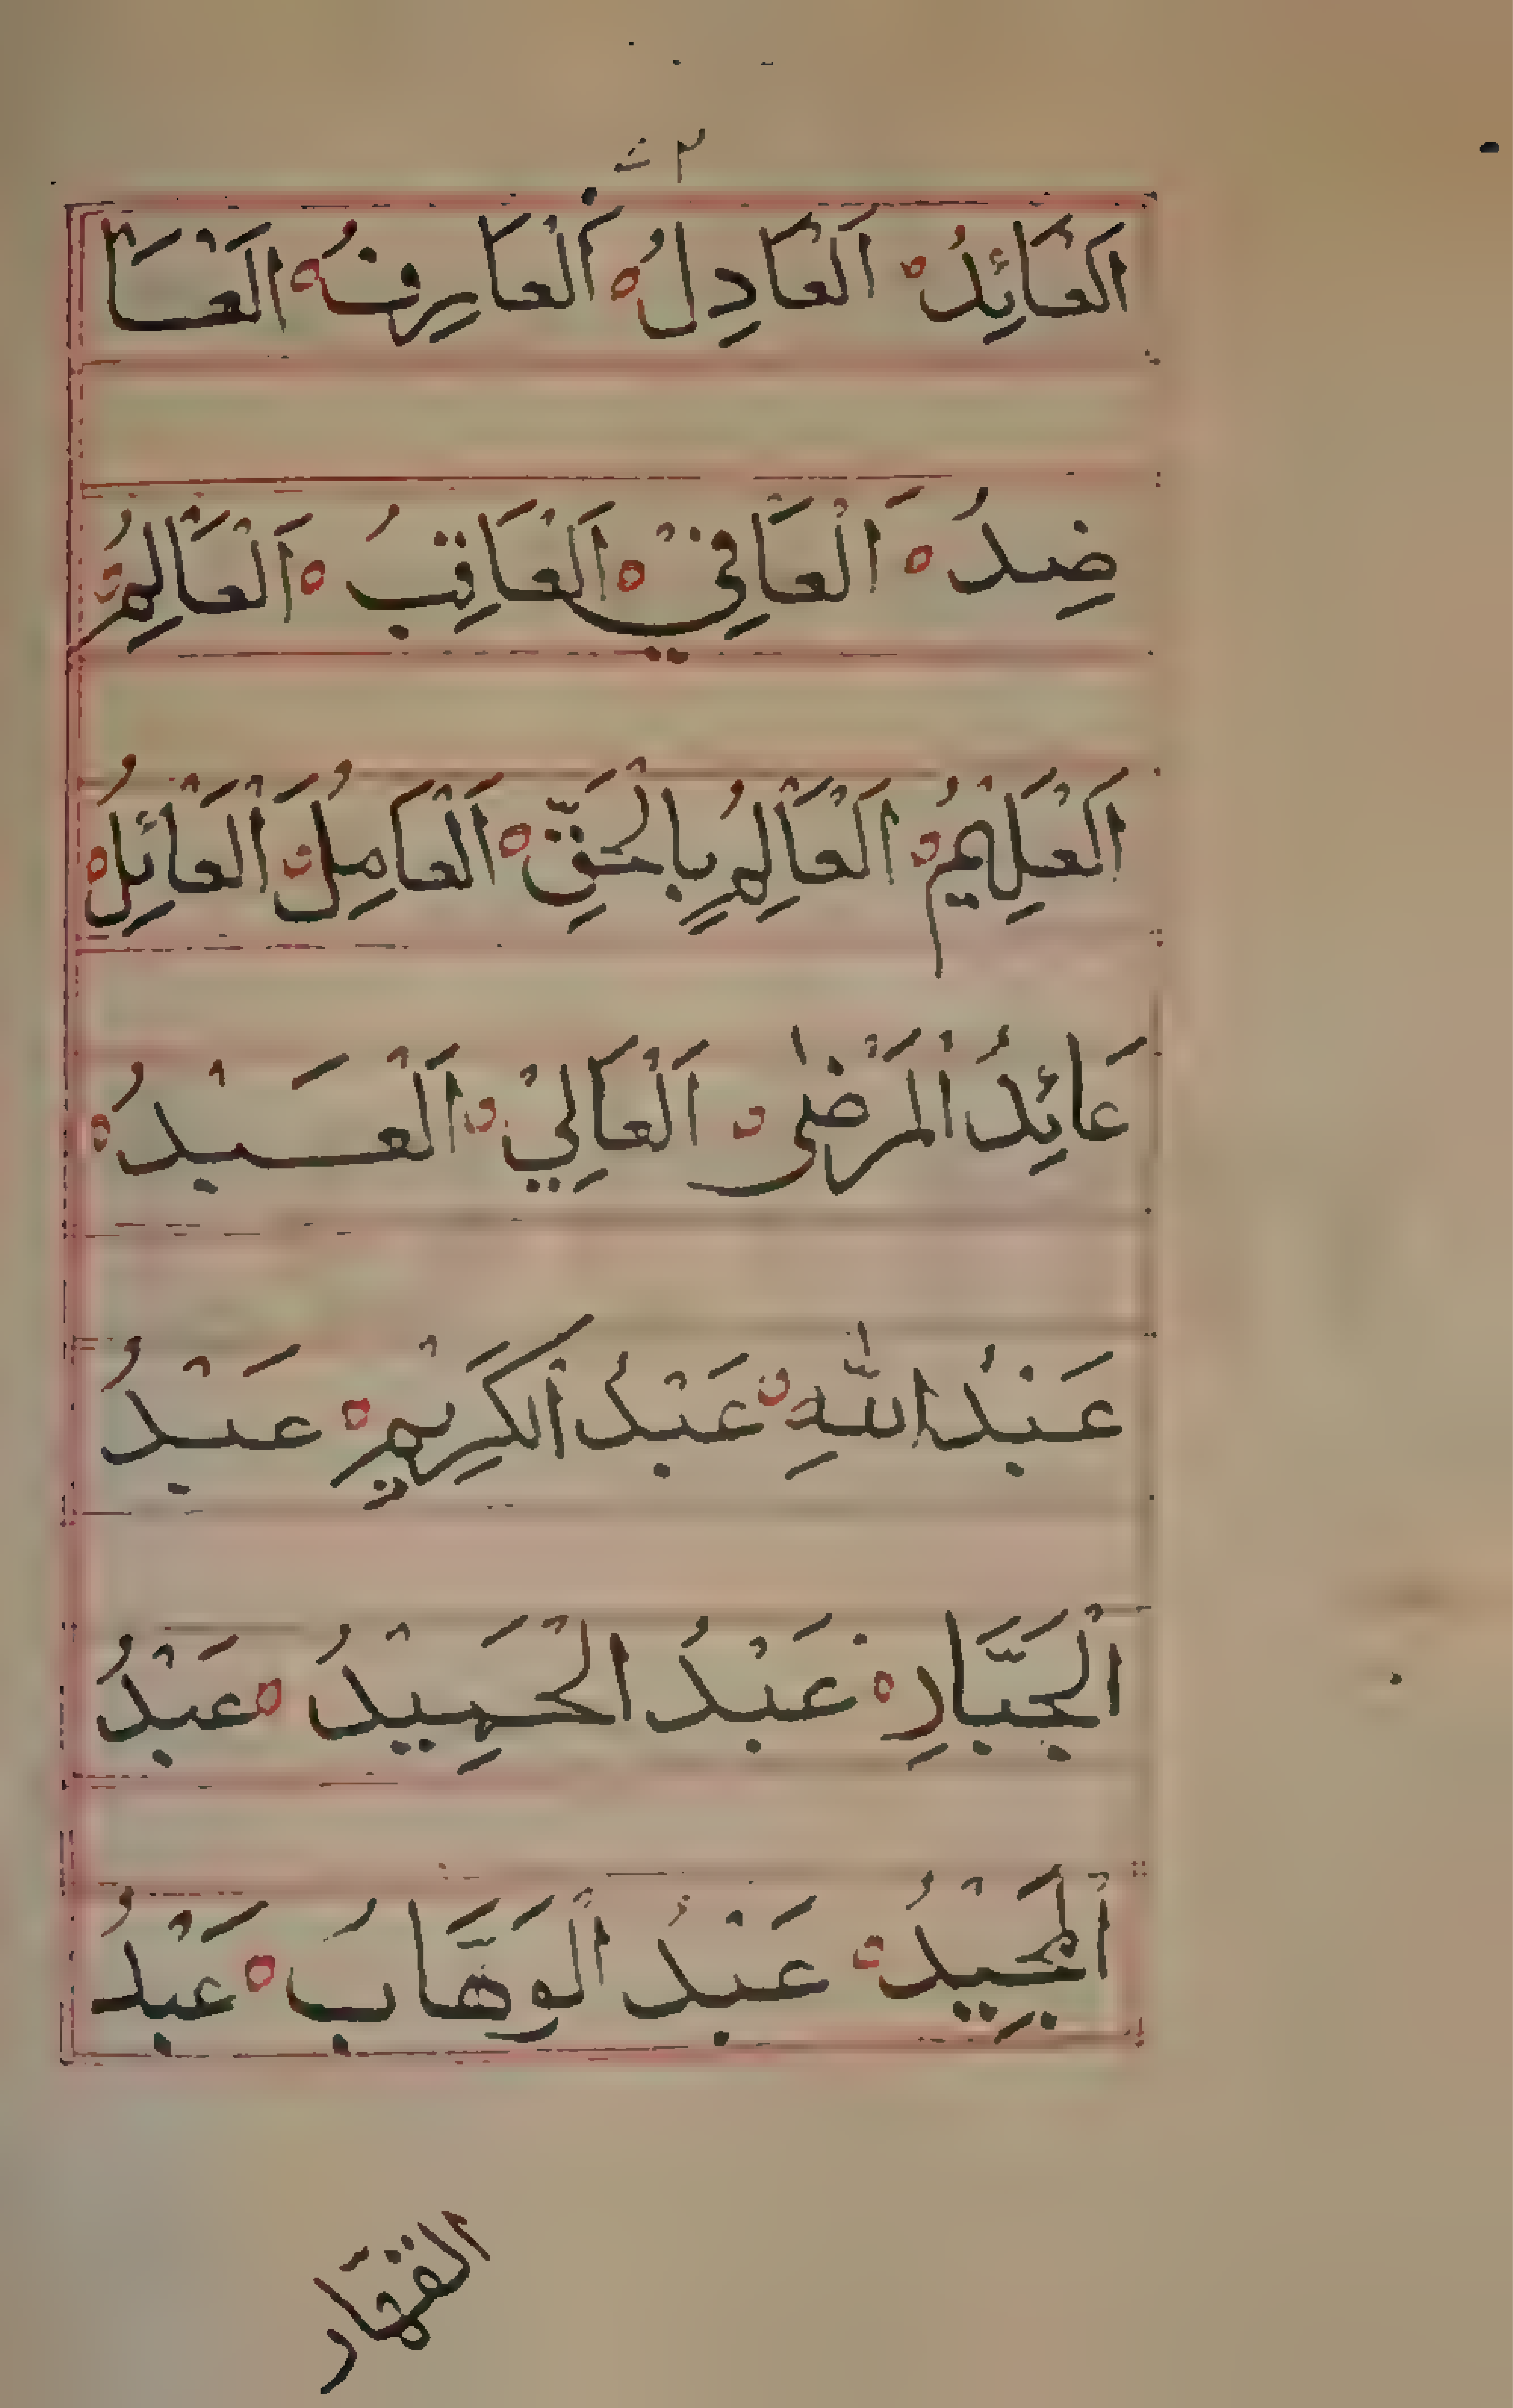 اَلْعَائِدُ ه اَلْعَادِلُ ه اَلْعَارِفُ ه اَلْعَا
ضِدُ ه اَلْعَافِيْ ه اَلْعَاقِبُ ه اَلْعَالِمُ ه
اَلْعَلِيْمُ ه اَلْعَالِمُ بِالْحَقِّ ه اَلْعَامِلُ ه اَلْعَائِلُ ه
عَائِدُ الْمَرْضٰى ه اَلْعَالِيْ ه اَلْعَبْدُ ه
عَبْدُ اللّٰهِ ه عَبْدُ الْكَرِيْمِ ه عَبْدُ
الْجَبَّارِ ه عَبْدُ الْحَمِيْدُ ه عَبْدُ
الْمَجِيْدُ ه عَبْدُ الْوَهَّابُ ه عَبْدُ
القهّار